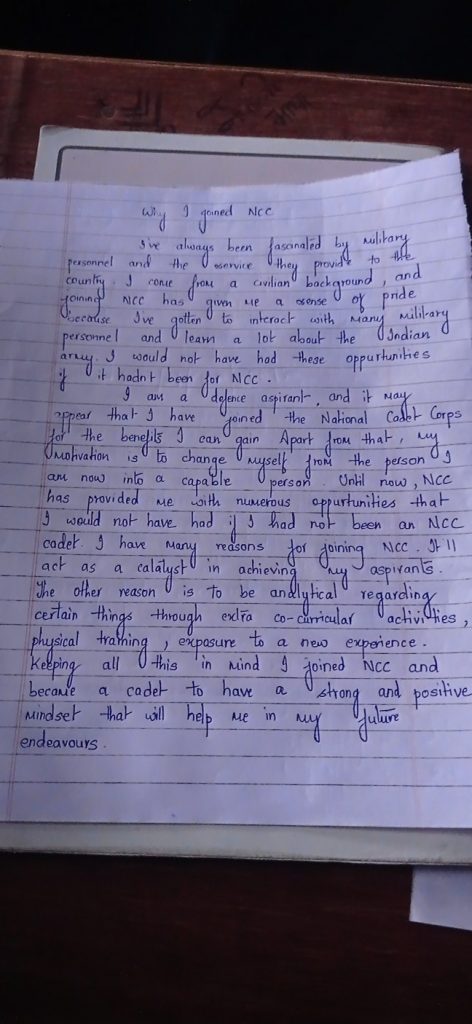 Why I joined NCC
I've always been fascinated by military
personnel and the service they provide to the
country. I come from a civilian background, and
joining NCC has given me a sense of pride
because I've gotten to interact with many military
personnel and learn a lot about the Indian
army. I would not have had these oppurtunities
if it hadnt been for NCC.
I am a defence aspirant, and it may
appear that I have joined the National Cadet Corps
for the benefits I can gain Apart from that, my
motivation is to change myself from the person I
am now into a capable person. Until now, NCC
has provided me with numerous oppurtunities that
I would not have had if I had not been an NCC
cadet. I have many reasons for joining NCC. It'll
act as a catalyst in achieving my aspirants.
The other reason is to be analytical regarding
certain things through extra co-curricular activities,
physical training, exposure to a new experience.
Keeping all this in mind I joined NCC and
became a cadet to have a strong and positive
mindset that will help me in my future
endeavours.